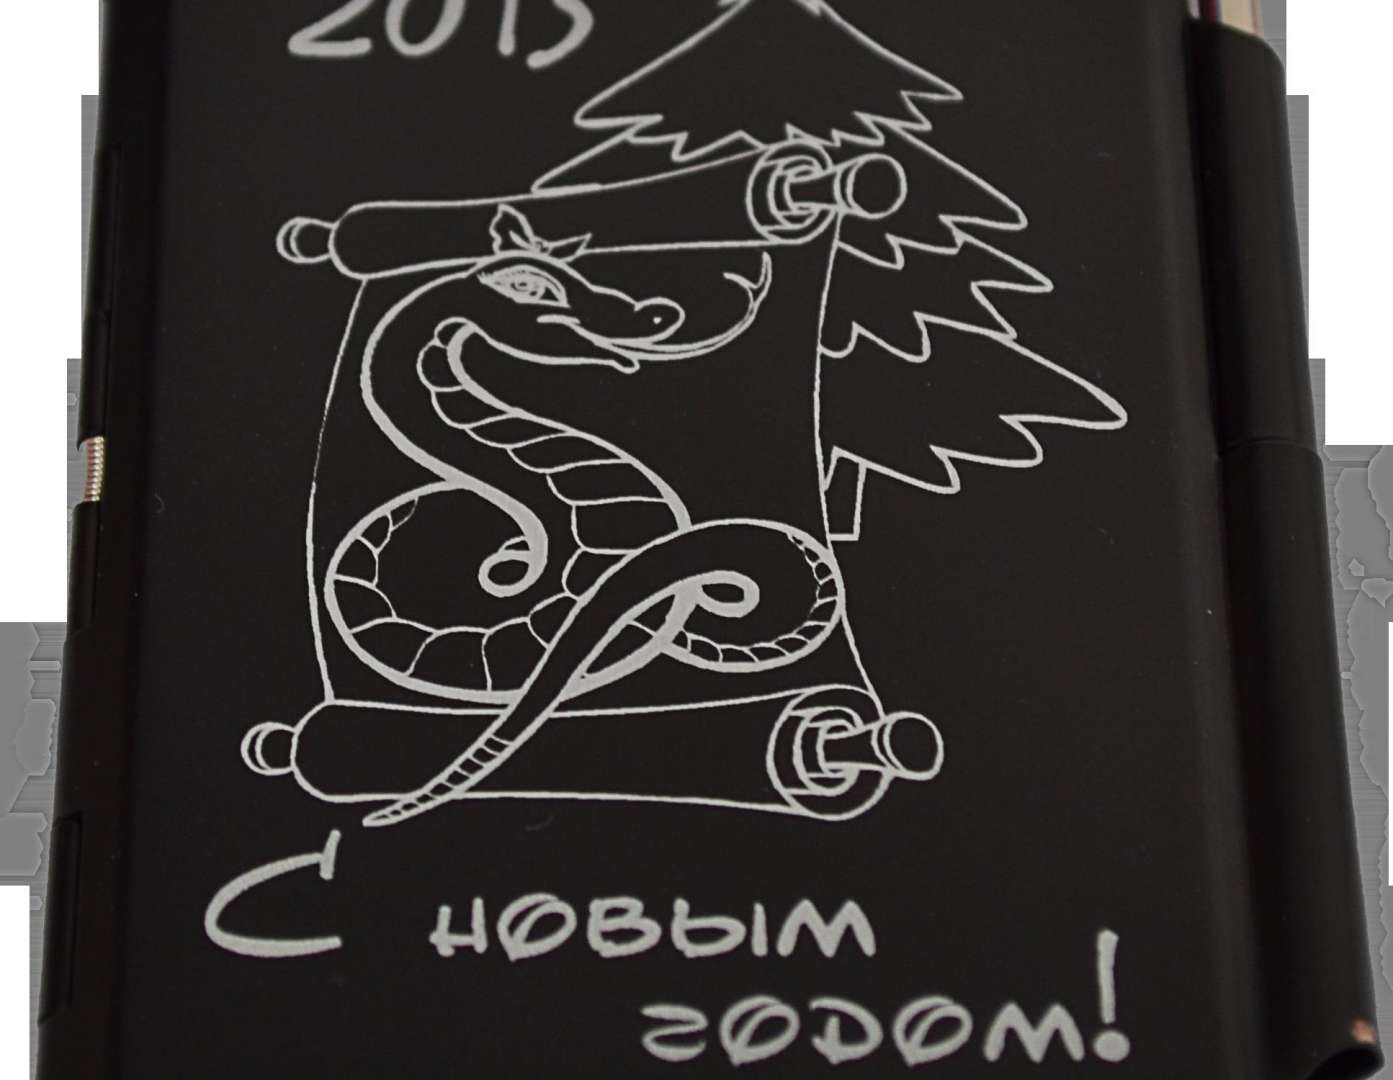 2013
С новым
годом!